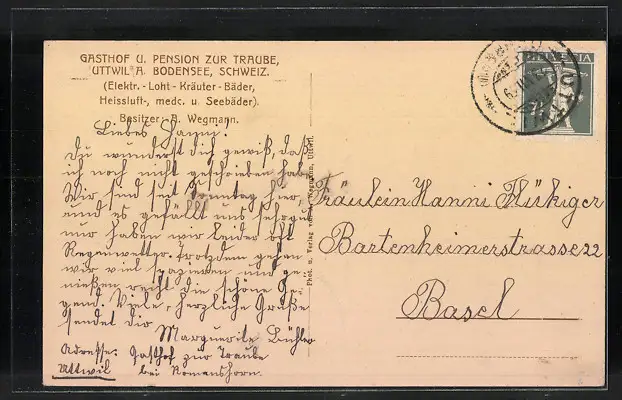 GASTHOF U. PENSION ZUR TRAUBE,
UTTWIL A. BODENSEE, SCHWEIZ.
(Elektr.- Loht- Kräuter- Bäder,
Heissluft-, medc. u Seebäder).
Besitzer: A. Wegmann.
Liebes Hanni!
Du wunderst dich gewiß, daß
ich noch nicht geschrieben habe.
Wir sind seit Sonntag hier,
und es gefällt uns sehr gut
nur haben wir leider oft
Regenwetter. Trotzdem gehen
wir viel spazieren und ge-
nießen recht die schöne Ge-
gend. Viele, herzliche Grüße
sendet dir
Marguerite Bühler
Adresse: Gasthof zur Traube
Uttwil bei Romanshorn.
Phot. u. Verlag von Wegmann, Uttwil.
HELVETIA
Fräulein Hanni Flükiger
Bartenheimerstrasse 22
Basel